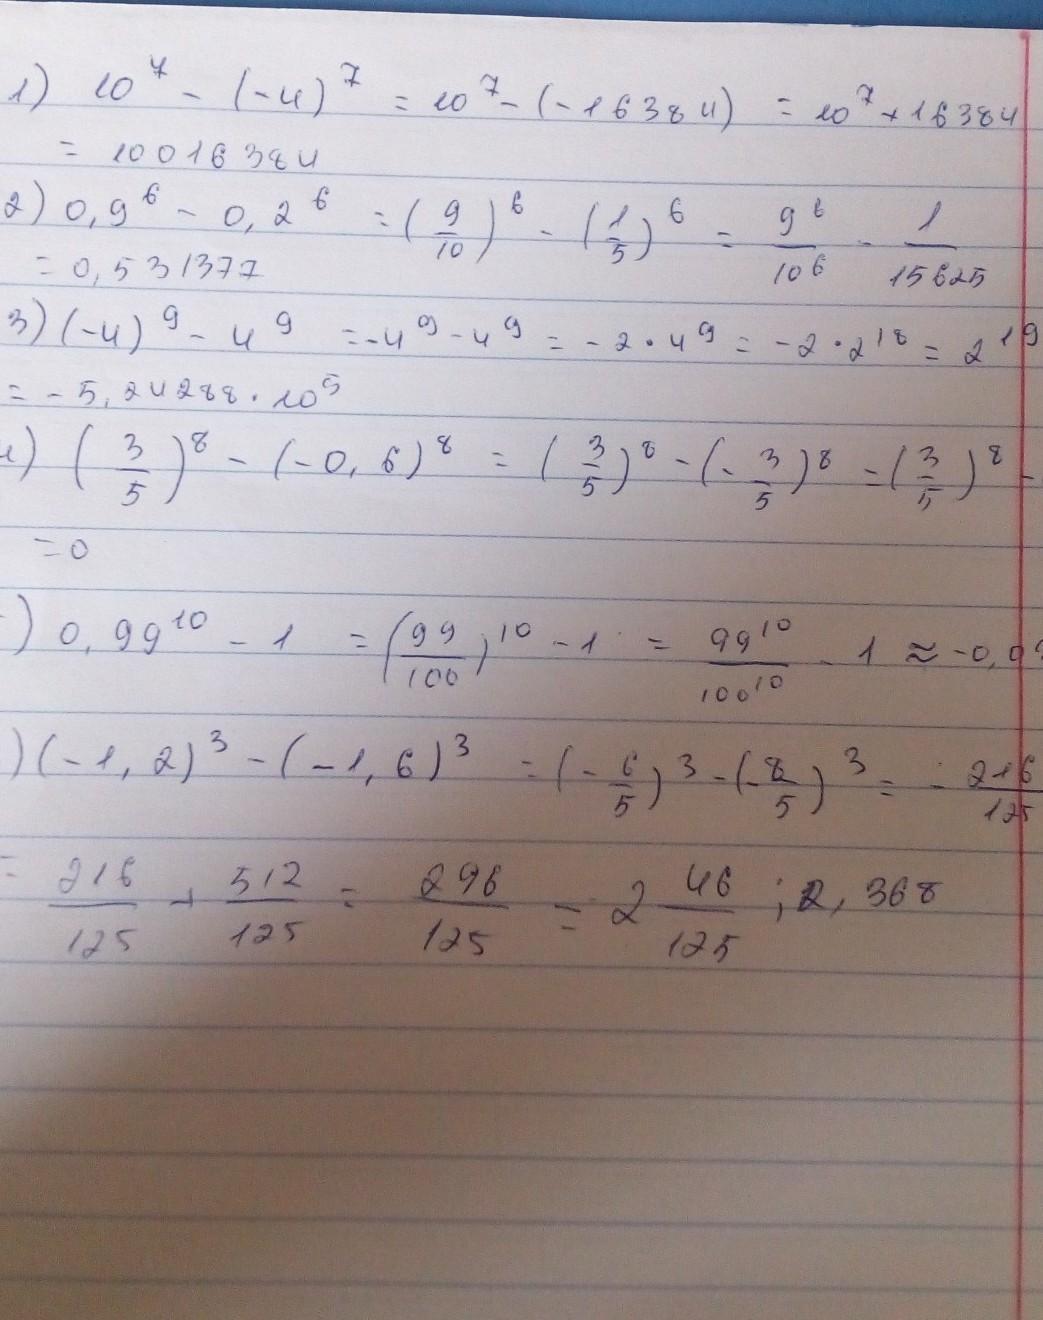 1) 10^7 - (-4)^7 = 10^7 - (-16384) = 10^7 + 16384
= 10016384
2) 0,9^6 - 0,2^6 = (9/10)^6 - (1/5)^6 = 9^6/10^6 - 1/15625
= 0,531377
3) (-4)^9 - 4^9 = -4^9 - 4^9 = -2·4^9 = -2·2^18 = 2^19
= -5,24288·10^5
(3/5)^8 - (-0,6)^8 = (3/5)^8 - (-3/5)^8 = (3/5)^8 -
= 0
) 0,99^10 - 1 = (99/100)^10 - 1 = 99^10/100^10 - 1 ≈ -0,0
) (-1,2)^3 - (-1,6)^3 = (-6/5)^3 - (-8/5)^3 = - 216/125
= 216/125 + 512/125 = 296/125 = 2 46/125 ; 2,368